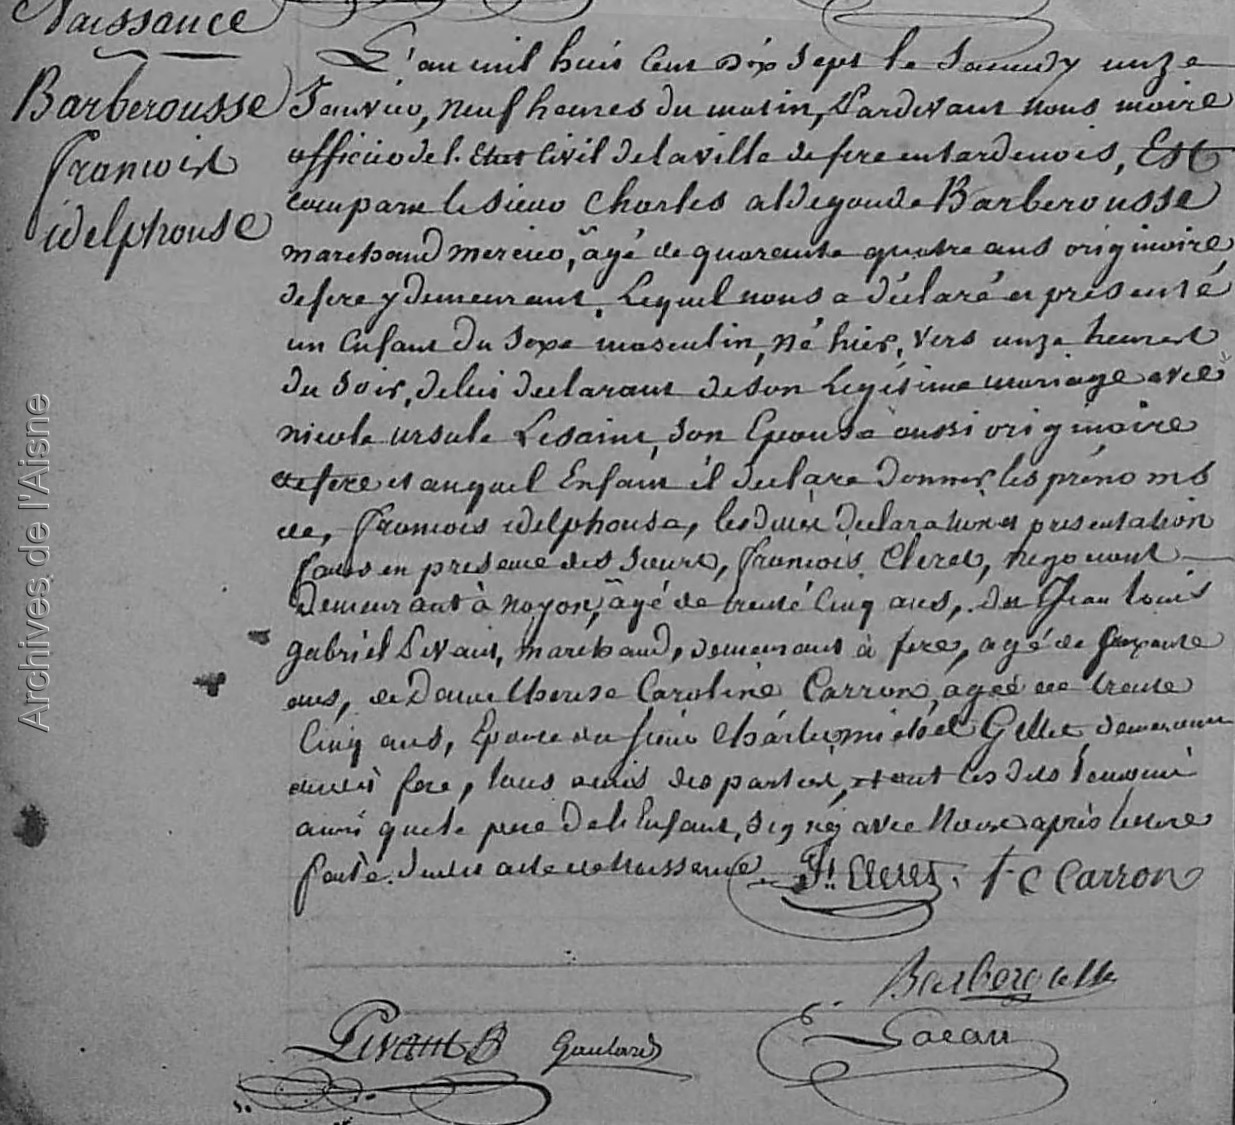 Naissance
Barberousse
françois
idelphonse
L'an mil huit cent dix sept le samedy unze
Janvier, neuf heures du matin, Pardevant nous maire
officier de l'Etat Civil de la ville de fere en tardenois, Est
comparu le sieur Charles aldegonde Barberousse
marchand mercier, âgé de quarente quatre ans originaire
de fere y demeurant, Lequel nous a déclaré et présenté
un Enfant du sexe masculin, né hier, vers unze heures
du soir, de lui declarant de son Legitime mariage avec
nicole ursule Lesaint, son Epouse aussi originaire
de fere et auquel Enfant il declare donner les prénoms
de, françois idelphonse, lesdites declaration et presentation
faites en presence des sieurs, françois Cleret, negociant
Demeurant à noyon, âgé de trente cinq ans, du Jean louis
gabriel Pivant, marchand, demeurant à fere, agé de
ans, et Dame therese Caroline Carron, agée de trente
Cinq ans, Epouse du sieur Charles michel Gellet demeurant
fere, tous amis des parties, et ont les dits temoins
ainsi que le pere de l'Enfant, signé avec Nous après lecture
faite acte de Naissance. ft Cleret. t C Carron
Barberousse
Pivant Gaulard
Archives de l'Aisne